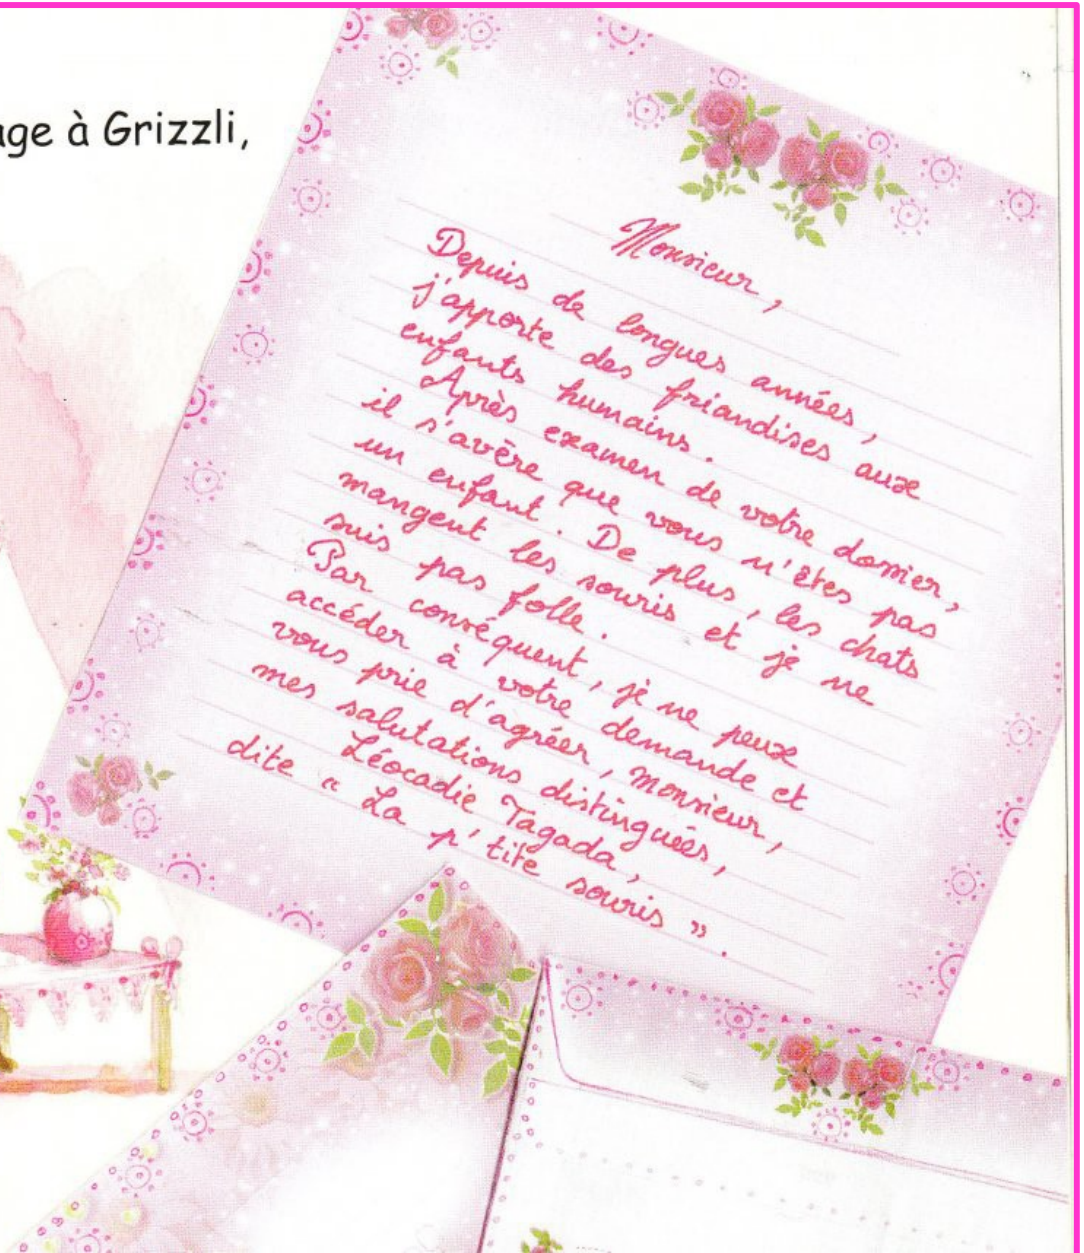 age à Grizzli,
Monsieur,
Depuis de longues années,
j'apporte des friandises aux
enfants humains.
Après examen de votre dossier,
il s'avère que vous n'êtes pas
un enfant. De plus, les chats
mangent les souris et je ne
suis pas folle.
Par conséquent, je ne peux
accéder à votre demande et
vous prie d'agréer, Monsieur,
mes salutations distinguées,
Léocadie Tagada,
dite « La p'tite souris ».